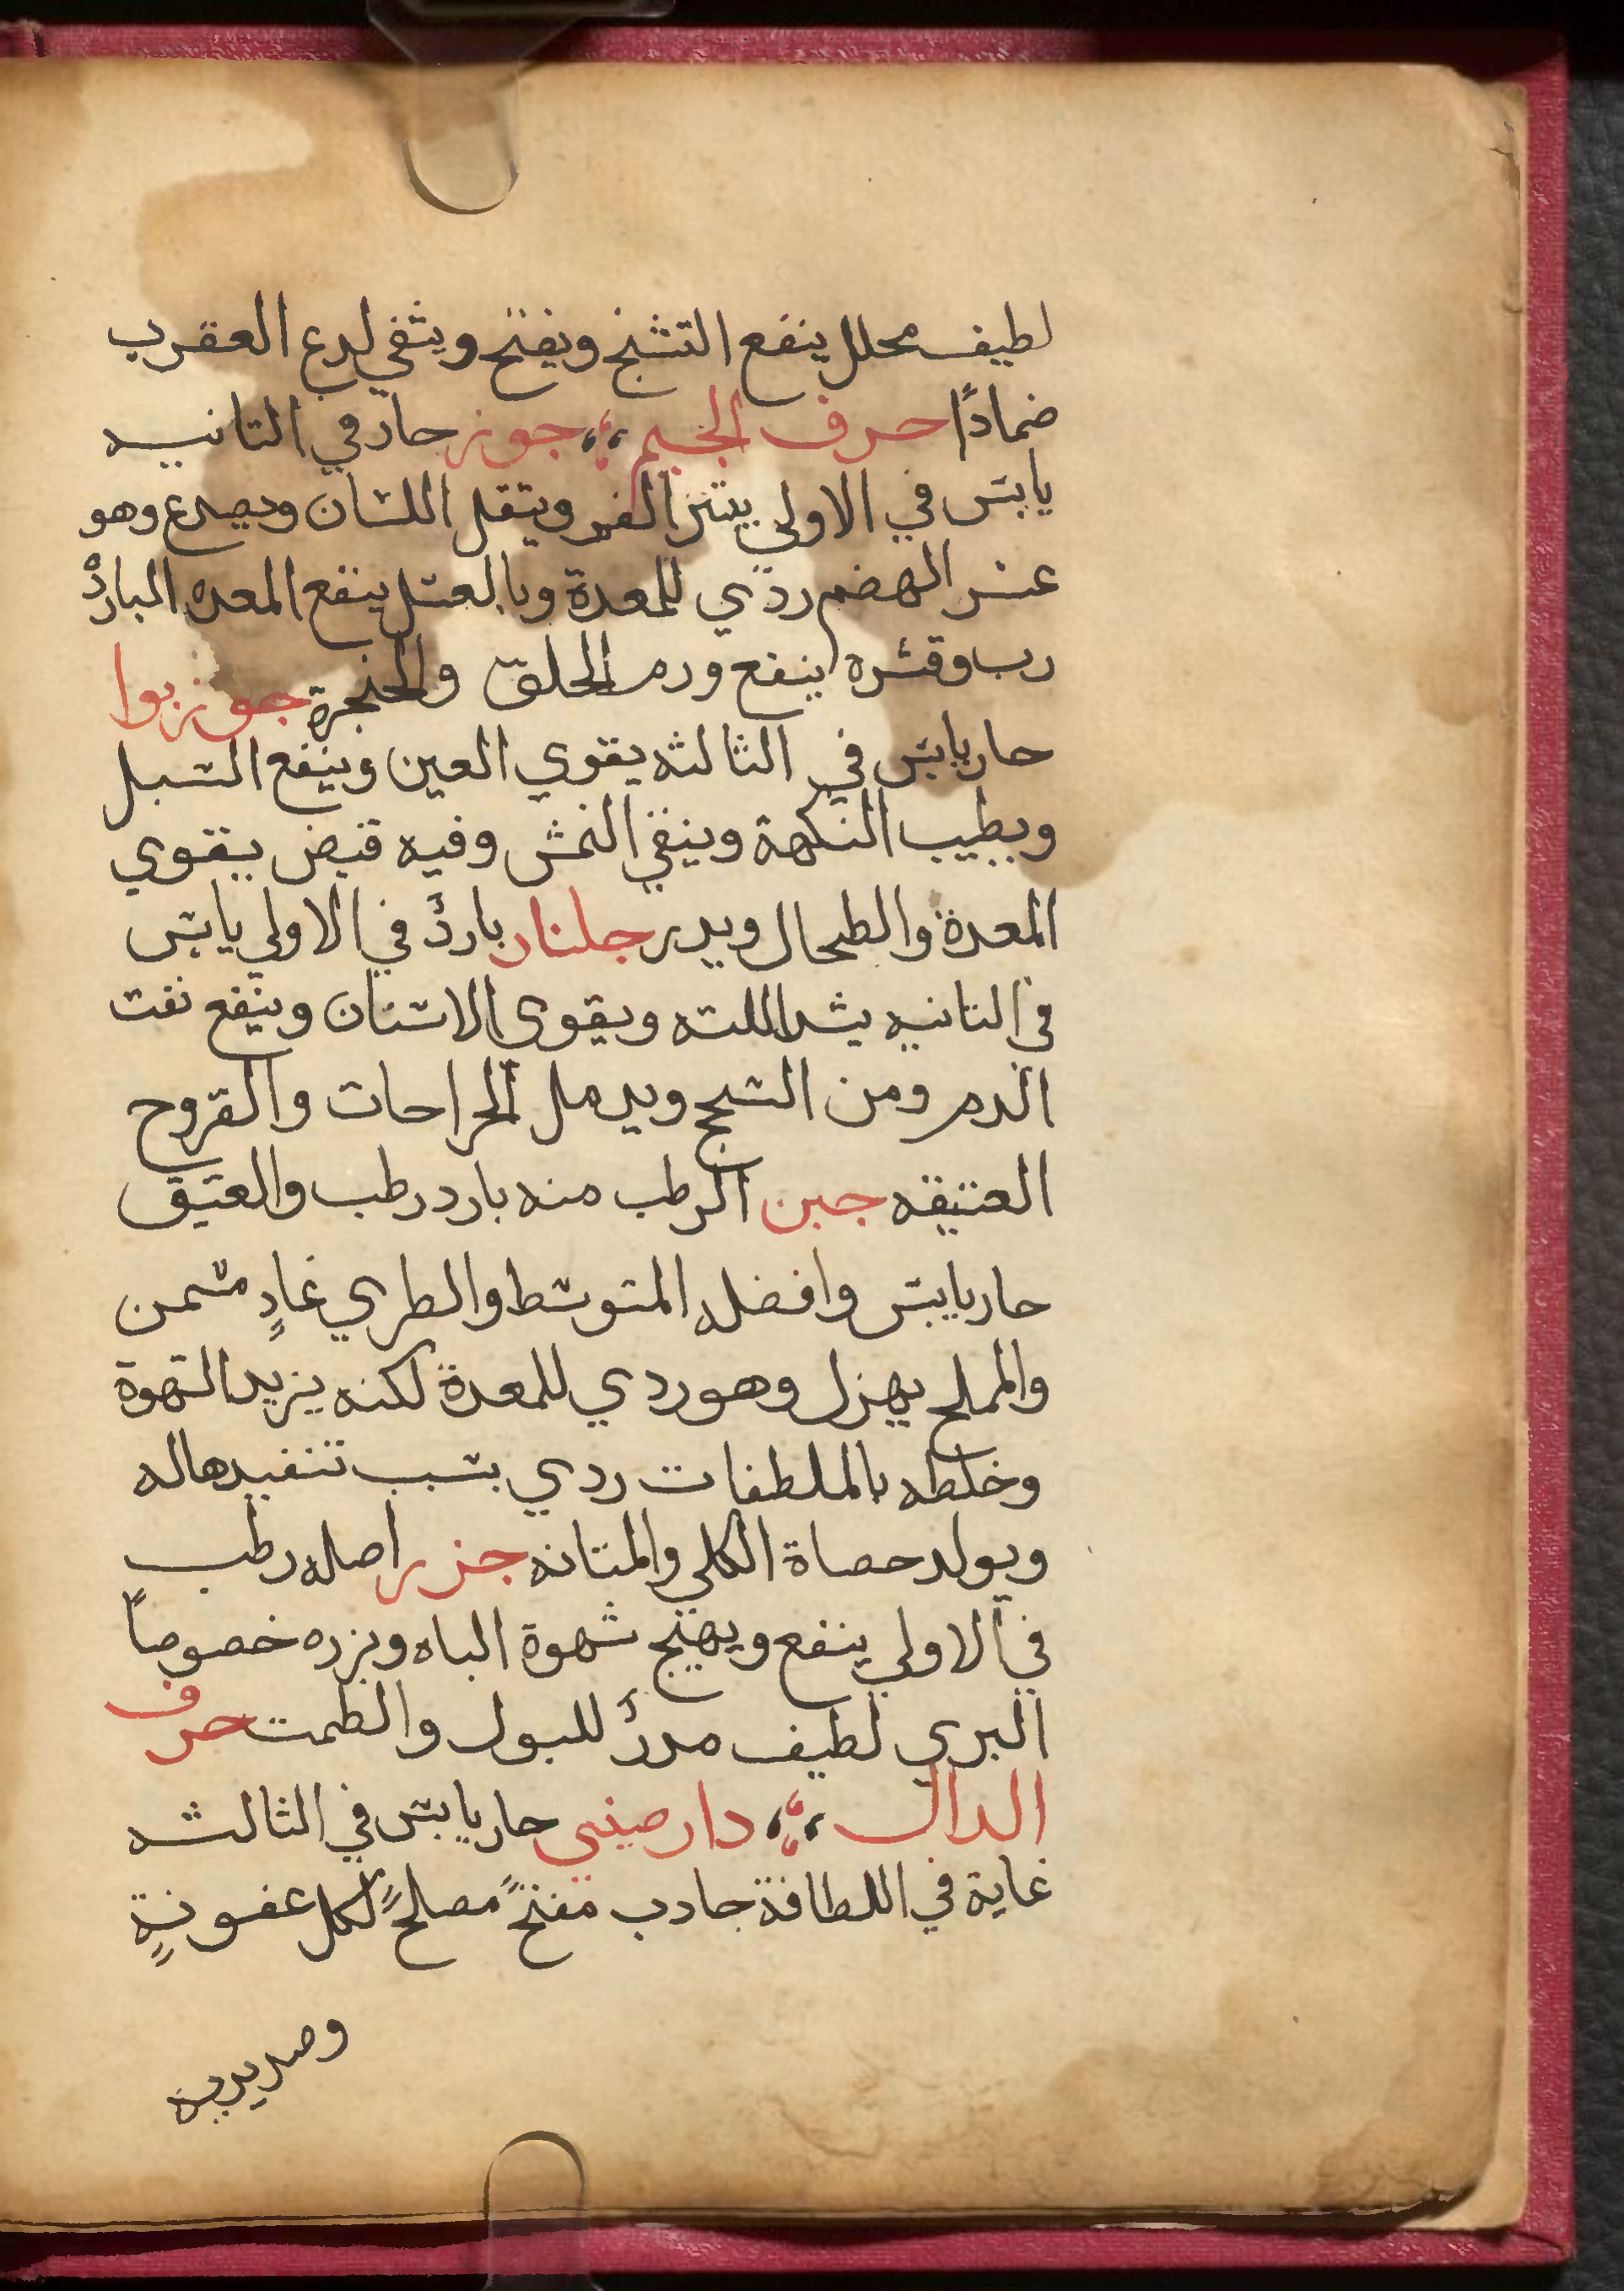 لطيف محلل ينفع التشنج ويفتح ويشفي لدع العقرب
ضمادًا حرف الجيم جوز حار في التانيه
يابس في الاولي يبثر الفم ويتقل اللسان ويصدع وهو
عسر الهضم ردي للمعدة وبالعسل ينفع المعده البارد
رب وقشره ينفع ورم الحلق والحنجرة جوز بوا
حار يابس في الثالثه يقوي العين وينفع السبل
ويطيب النكهة وينقي النمش وفيه قبض يقوي
المعدة والطحال ويدر جلنار بارد في الاولي يابس
في التانيه يشد اللته ويقوي الاسنان وينفع نفت
الدم ومن السحج ويدمل الجراحات والقروح
العتيقه جبن الرطب منه بارد رطب والعتيق
حار يابس وافضله المتوسط والطري غادٍ مسمن
والمملح يهزل وهو ردي للمعدة لكنه يزيد الشهوة
وخلطه بالملطفات ردي بسبب تنفيدها له
ويولد حصاة الكلي والمتانه جزر اصله رطب
في الاولي ينفع ويهيج شهوة الباه وبزره خصوصاً
البري لطيف مدر للبول والطمت حرف
الدال دارصيني حار يابس في الثالثه
غاية في اللطافة جادب مفتح مصلح لكل عفونةٍ
وصديديه